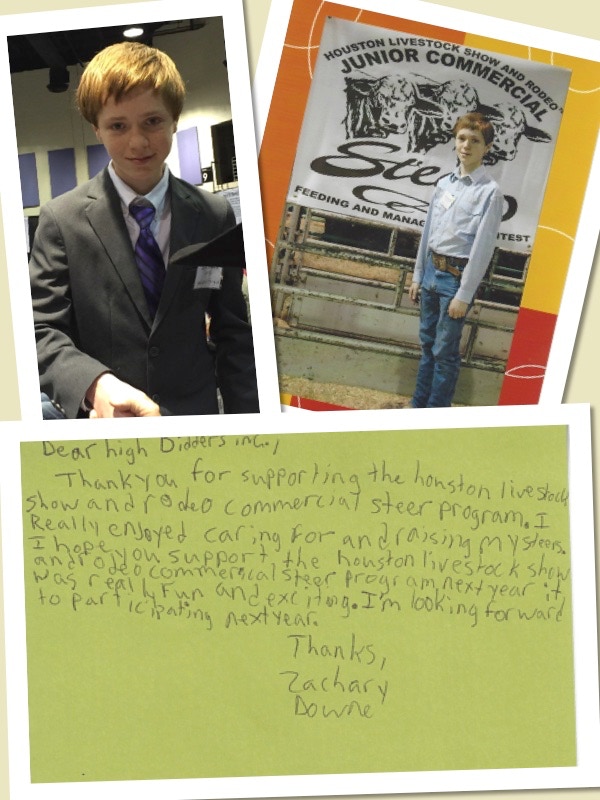 HOUSTON LIVESTOCK SHOW AND RODEO
JUNIOR COMMERCIAL
FEEDING AND
9
Dear high Bidders inc.,
Thank you for supporting the houston livestock
show and rodeo commercial steer program. I
Really enjoyed caring for and raising my steers.
I hope you support the houston livestock show
and rodeo commercial steer program next year it
was really fun and exciting. I'm looking forward
to participating next year.
Thanks,
Zachary
Downe